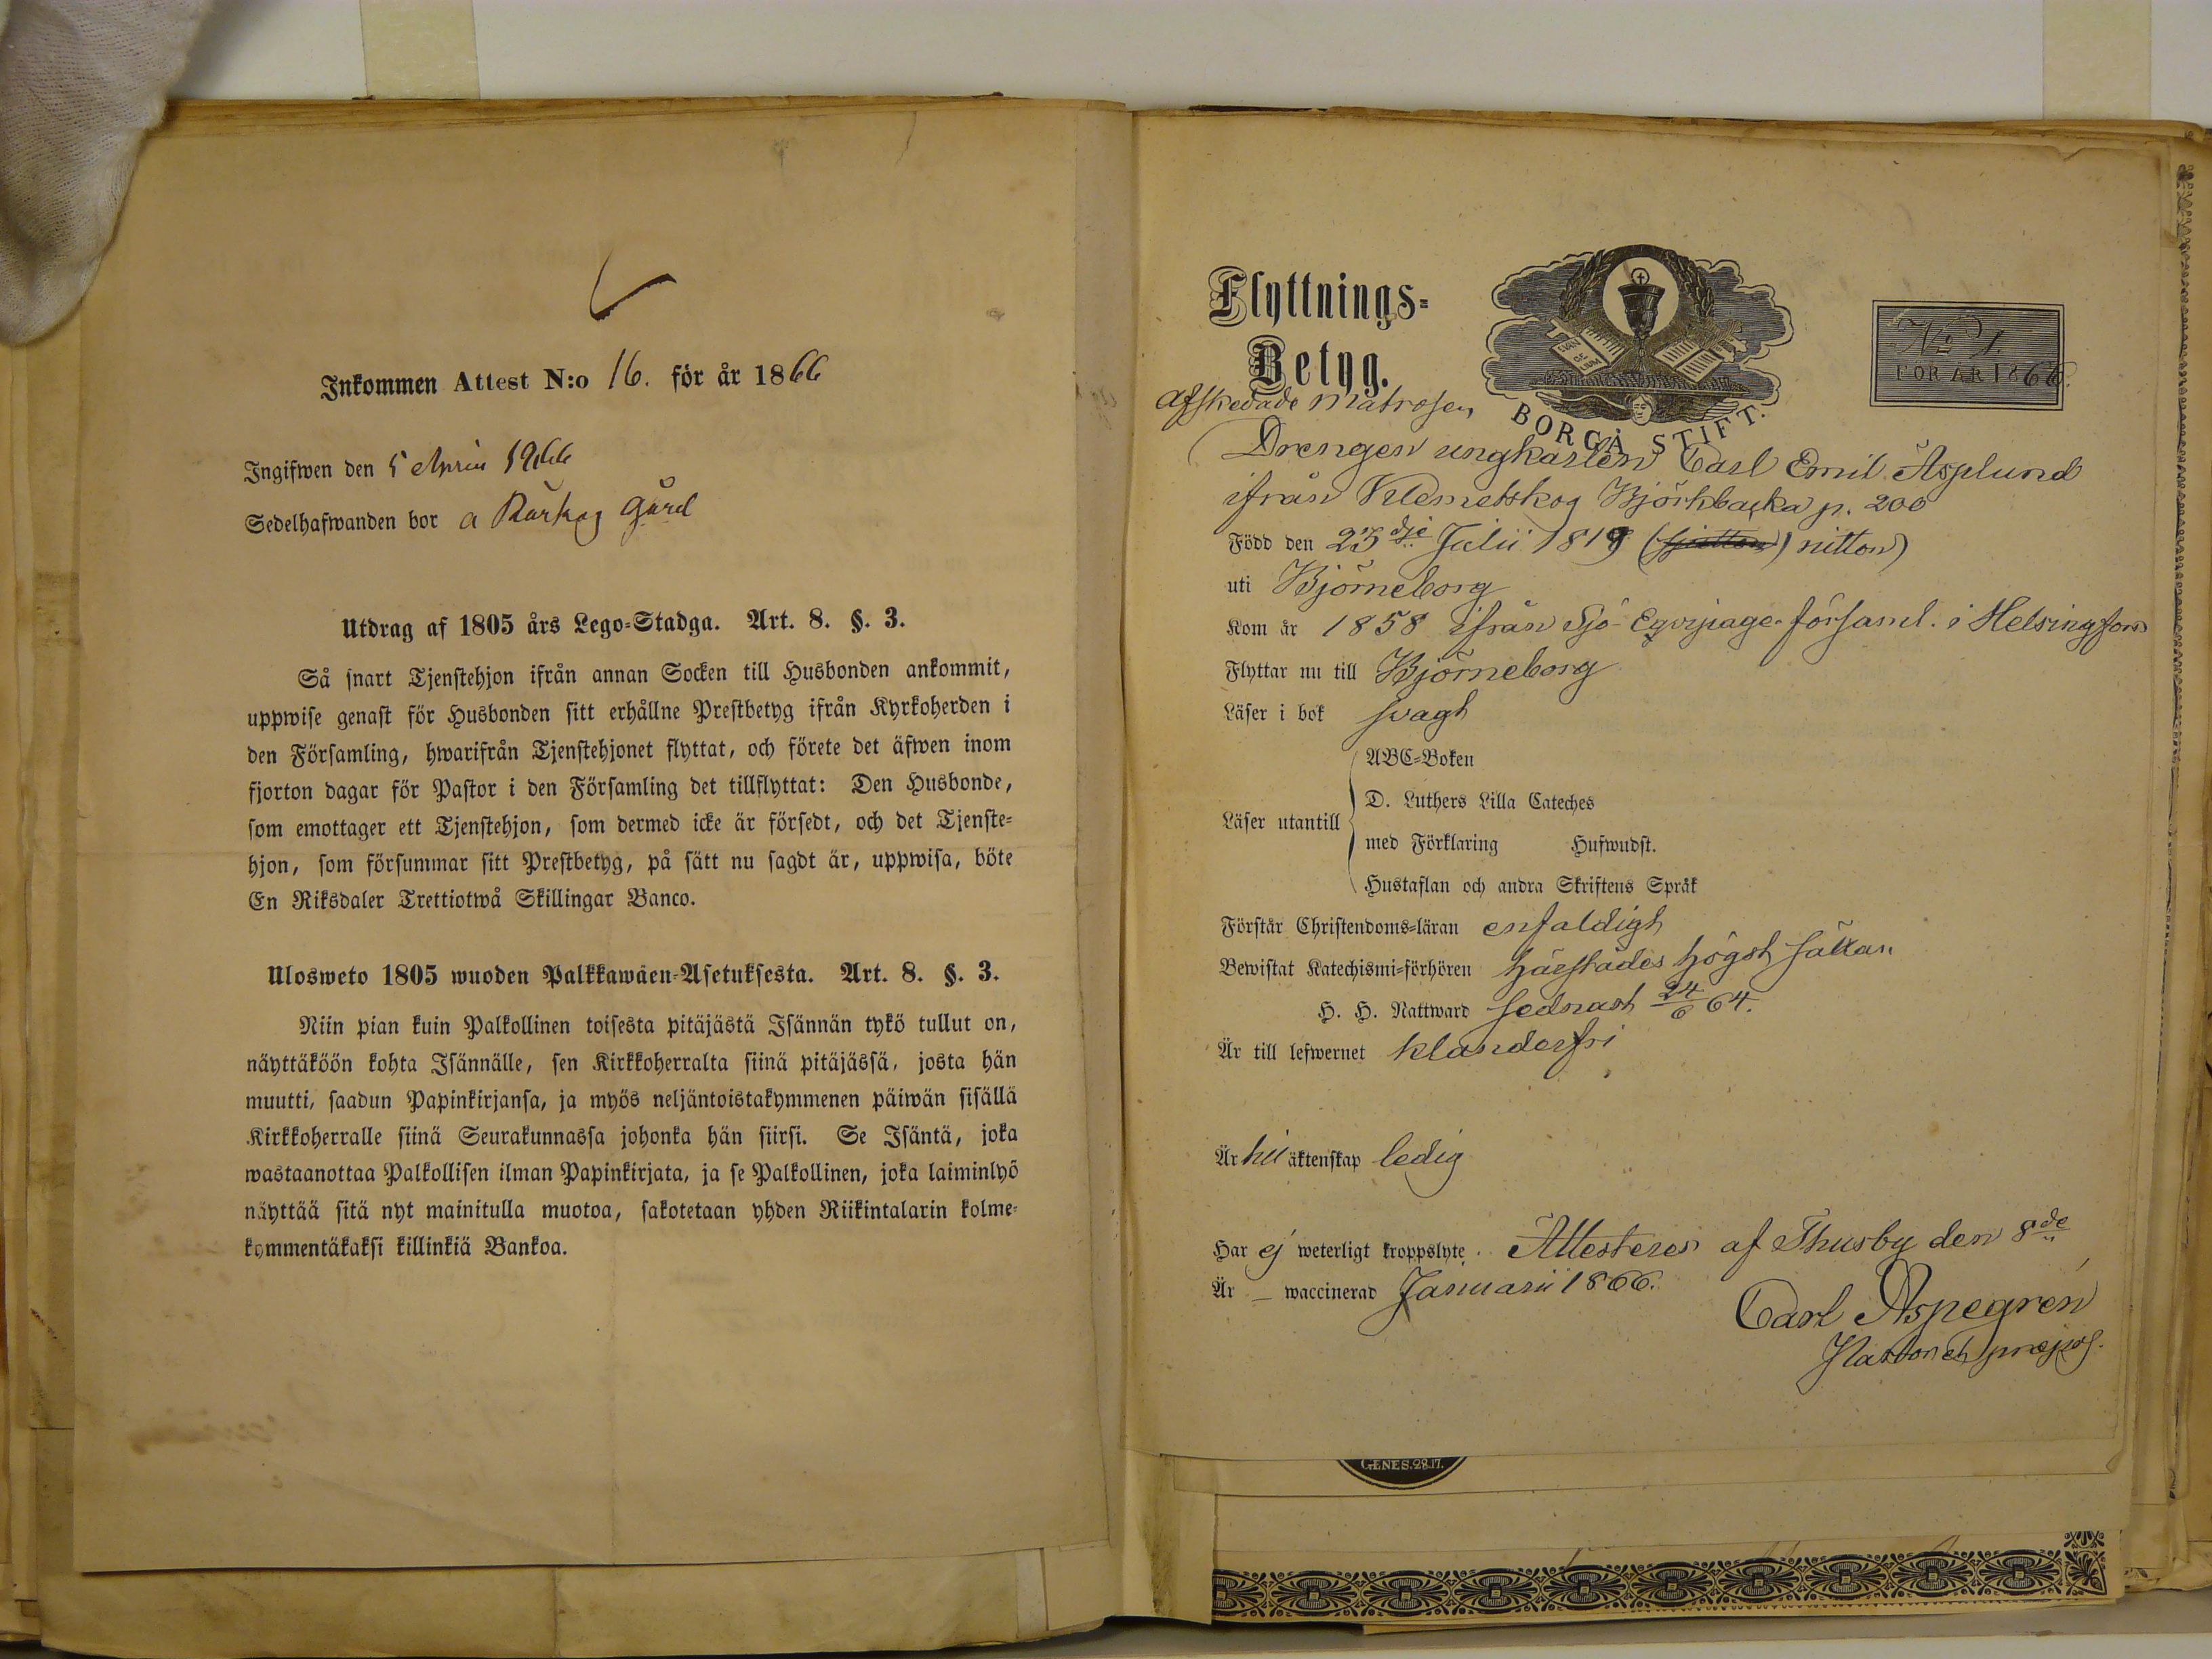 Inkommen Attest N:o 16. för år 1866
Ingifwen den 5 April 1866
Sedelhafwanden bor a gård
Utdrag af 1805 års Lego-Stadga. Art. 8. §. 3.
Så snart Tjenstehjon ifrån annan Socken till Husbonden ankommit,
uppwise genast för Husbonden sitt erhållne Prestbetyg ifrån Kyrkoherden i
den Församling, hwarifrån Tjenstehjonet flyttat, och förete det äfwen inom
fjorton dagar för Pastor i den Församling det tillflyttat: Den Husbonde,
som emottager ett Tjenstehjon, som dermed icke är försedt, och det Tjenste-
hjon, som försummar sitt Prestbetyg, på sätt nu sagdt är, uppwisa, böte
En Riksdaler Trettiotwå Skillingar Banco.
Ulosweto 1805 wuoden Palkkawäen-Asetuksesta. Art. 8. §. 3.
Niin pian kuin Palkollinen toisesta pitäjästä Isännän tykö tullut on,
näyttäköön kohta Isännälle, sen Kirkkoherralta siinä pitäjässä, josta hän
muutti, saadun Papinkirjansa, ja myös neljäntoistakymmenen päiwän sisällä
Kirkkoherralle siinä Seurakunnassa johonka hän siirsi. Se Isäntä, joka
wastaanottaa Palkollisen ilman Papinkirjata, ja se Palkollinen, joka laiminlyö
näyttää sitä nyt mainitulla muotoa, sakotetaan yhden Riikintalarin kolme-
kymmentäkaksi killinkiä Bankoa.
Flyttnings-
Betyg.
EVAN
GE
LIUM
BORGÅ STIFT.
No 1.
FÖR ÅR 1866.
Afskedade matrosen
Drengen ungkarlen Carl Emil Asplund
ifrån Klemetskog Björkbacka p. 200
Född den 23dje Julii 1819 (sjutton) nitton)
uti Björneborg
Kom år 1858 ifrån Sjö-Eqvipage-församl. i Helsingfors
Flyttar nu till Björneborg
Läser i bok svagt
Läser utantill
ABC-Boken
D. Luthers Lilla Cateches
med Förklaring Hufwudst.
Hustaflan och andra Skriftens Språk
Förstår Christendoms-läran enfaldigt
Bewistat Katechismi-förhören härstädes högst sällan
H. H. Nattward sednast 24/6 64.
Är till lefwernet klanderfri
Är till äktenskap ledig
Har ej weterligt kroppslyte. Attesteres af Thusby den 8de
Är — waccinerad Januarii 1866.
Carl Aspegrén
Pastor et præpos.
GENES. 28. 17.